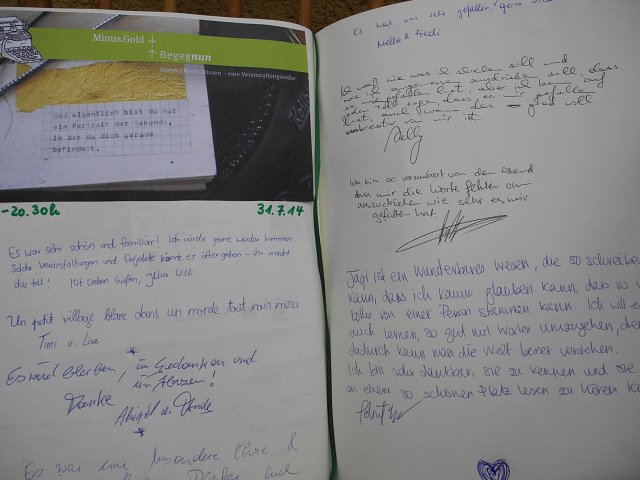 Minus.Gold ↓
↑ Begegnun
WandelWerteWissen - eine Veranstaltungsreihe
Und eigentlich bist du nur
ein Portrait der Sekunde,
in der du dich gerade
befindest.
-20.30h 31.7.14
Es war sehr schön und familiär! Ich würde gerne wieder kommen.
Solche Veranstaltungen und Projekte könnte es öfter geben - ihr macht
das toll! Mit lieben Grüßen, Julia
Un petit village blanc dans un monde tout noir
Timi u. Lea
Es wird bleiben, im Gedanken und
im Herzen!
Danke
Es war eine besondere Ehre &
Es hat uns sehr gefallen gerne
Nella & Fredi
Ich weiß nie was ich schreiben soll und
wie ich ausdrücken soll, dass
es mir gefallen hat, aber ich kann auf
jeden Fall sagen, dass es mir gefallen
hat, auch wenn das
von mir ist.
Nelly
Ich bin so verzaubert von dem Abend
dass mir die Worte fehlen um
auszudrücken wie sehr es mir
gefallen hat.
Jagi ist ein Wunderbares Wesen, die so schreibe
kann, dass ich kaum glauben kann, dass so v
tolles von einer Person stammen kann. Ich will
auch lernen, so gut mit Worten umzugehen, de
dadurch kann man die Welt besser verstehen.
Ich bin sehr dankbar, sie zu kennen und sie
an einem so schönen Platz lesen zu hören